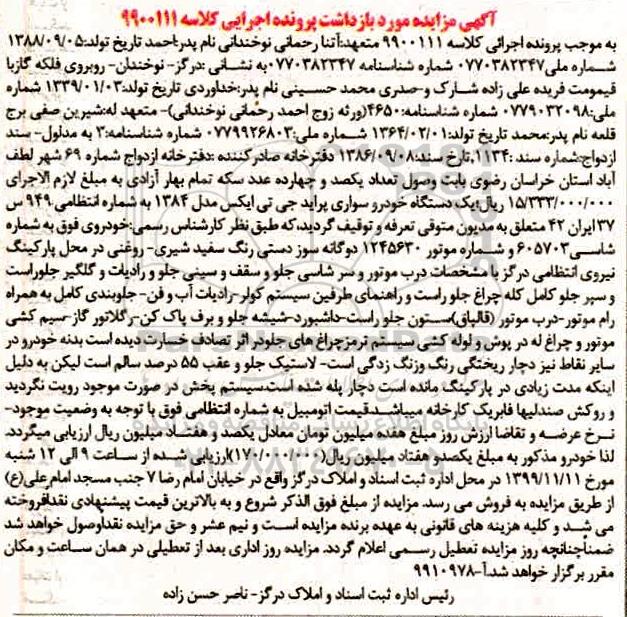 آگهی مزایده مورد بازداشت پرونده اجرایی کلاسه ۹۹۰۰۱۱۱
به موجب پرونده اجرائی کلاسه ۹۹۰۰۱۱۱ متعهد:آتنا رحمانی نوخندانی نام پدر:احمد تاریخ تولد:۱۳۸۸/۰۹/۰۵
شماره ملی۰۷۷۰۳۸۲۳۴۷ شماره شناسنامه ۰۷۷۰۳۸۲۳۴۷به نشانی :درگز- نوخندان- روبروی فلکه گازبا
قیمومت فریده علی زاده شارک و-صدری محمد حسینی نام پدر:خداوردی تاریخ تولد:۱۳۳۹/۰۱/۰۳ شماره
ملی:۰۷۷۹۰۳۲۰۹۸ شماره شناسنامه:۴۶۵۰(ورثه زوج احمد رحمانی نوخندانی)- متعهد له:شیرین صفی برج
قلعه نام پدر:محمد تاریخ تولد:۱۳۶۴/۰۲/۰۱ شماره ملی:۰۷۷۹۹۲۶۸۰۳ شماره شناسنامه:۲ به مدلول- سند
ازدواج:شماره سند :۱۱۳۴,تارخ سند:۱۳۸۶/۰۹/۰۸ دفترخانه صادرکننده :دفترخانه ازدواج شماره ۶۹ شهر لطف
آباد استان خراسان رضوی بابت وصول تعداد یکصد و چهارده عدد سکه تمام بهار آزادی به مبلغ لازم الاجرای
۱۵/۳۳۳/۰۰۰/۰۰۰ ریال،یک دستگاه خودرو سواری پراید جی تی ایکس مدل ۱۳۸۴ به شماره انتظامی ۹۴۹ س
۳۷ ایران ۴۲ متعلق به مدیون متوفی تعرفه و توقیف گردید،که طبق نظر کارشناس رسمی:خودروی فوق به شماره
شاسی۶۰۵۷۰۳ و شماره موتور ۱۲۴۵۶۳۰ دوگانه سوز دستی رنگ سفید شیری- روغنی در محل پارکینگ
نیروی انتظامی درگز با مشخصات درب موتور و سر شاسی جلو و سقف و سینی جلو و رادیات و گلگیر جلوراست
و سپر جلو کامل کله چراغ جلو راست و راهنمای طرفین سیستم کولر-رادیات آب و فن- جلوبندی کامل به همراه
رام موتور-درب موتور (قالپاق)ستون جلو راست-داشبورد-شیشه جلو و برف پاک کن-رگلاتور گاز-سیم کشی
موتور و چراغ له در پوش و لوله کشی سیستم ترمزچراغ های جلودر اثر تصادف خسارت دیده است بدنه خودرو در
سایر نقاط نیز دچار ریختگی رنگ وزنگ زدگی است- لاستیک جلو و عقب ۵۵ درصد سالم است لیکن به دلیل
اینکه مدت زیادی در پارکینگ مانده است دچار پله شده است.سیستم پخش در صورت موجود رویت نگردید
و روکش صندلیها فابریک کارخانه میباشد.قیمت اتومبیل به شماره انتظامی فوق با توجه به وضعیت موجود-
نرخ عرضه و تقاضا ارزش روز مبلغ هفده میلیون تومان معادل یکصد و هفتاد میلیون ریال ارزیابی میگردد.
لذا خودرو مذکور به مبلغ یکصدو هفتاد میلیون ریال(۱۷۰/۰۰۰/۰۰۰)ارزیابی شده از ساعت ۹ الی ۱۲ شنبه
مورخ ۱۳۹۹/۱۱/۱۱ در محل اداره ثبت اسناد و املاک درگز واقع در خیابان امام رضا ۷ جنب مسجد امام علی(ع)
از طریق مزایده به فروش می رسد. مزایده از مبلغ فوق الذکر شروع و به بالاترین قیمت پیشنهادی نقدافروخته
می شد و کلیه هزینه های قانونی به عهده برنده مزایده است و نیم عشر و حق مزایده نقداوصول خواهد شد
ضمناًچنانچه روز مزایده تعطیل رسمی اعلام گردد. مزایده روز اداری بعد از تعطیلی در همان ساعت و مکان
مقرر برگزار خواهد شد.آ-۹۹۱۰۹۷۸
رئیس اداره ثبت اسناد و املاک درگز- ناصر حسن زاده